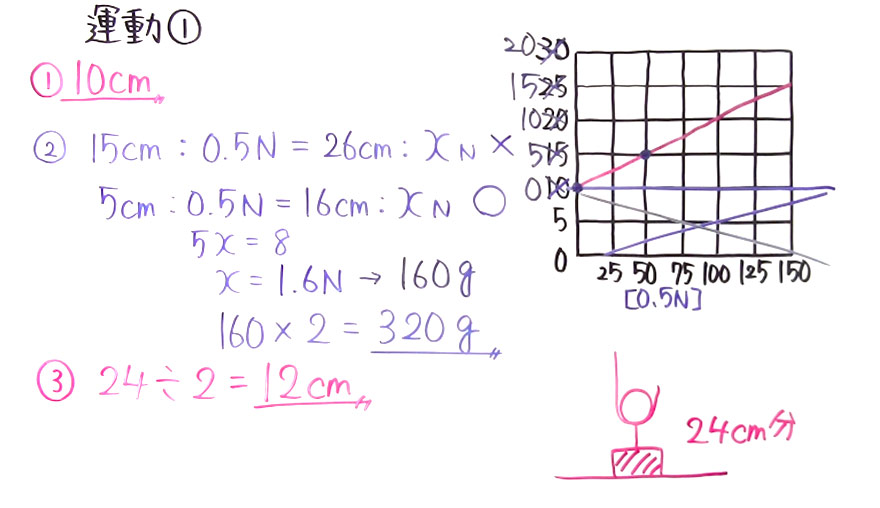 運動①
① 10cm
② 15cm : 0.5N = 26cm : xN ×
5cm : 0.5N = 16cm : xN ○
5x = 8
x = 1.6N → 160g
160 × 2 = 320g
③ 24 ÷ 2 = 12cm
20 30
15 25
10 20
5 15
0 10
5
0
25 50 75 100 125 150
[0.5N]
24cm分